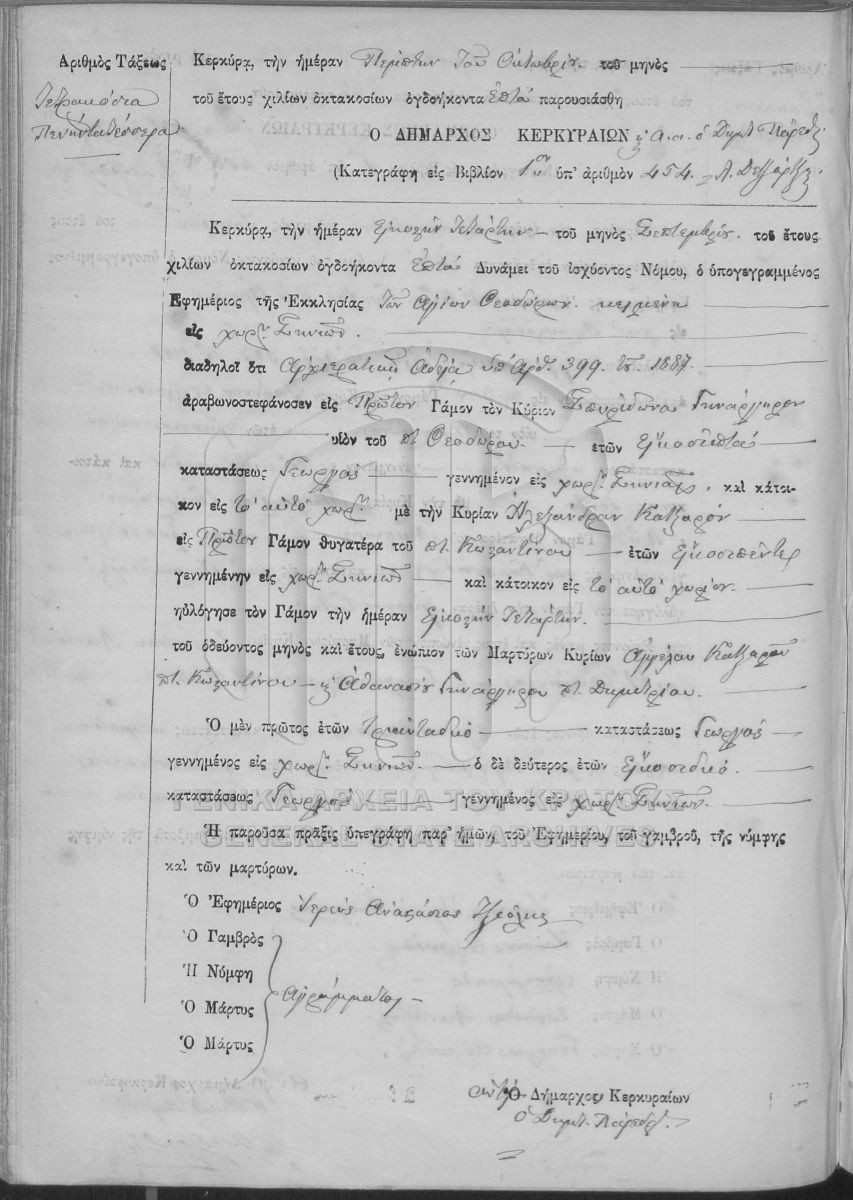 Ἀριθμὸς Τάξεως
Τετρακόσια
Πενήντα τέσσερα
Κερκύρᾳ, τὴν ἡμέραν Πέμπτην τοῦ Ὀκτωβρίου τοῦ μηνὸς
τοῦ ἔτους χιλίων ὀκτακοσίων ὀγδοήκοντα ἑπτὰ παρουσιάσθη
Ο ΔΗΜΑΡΧΟΣ ΚΕΡΚΥΡΑΙΩΝ κ α.α. ὁ Δημτ Πάρεδρ
(Κατεγράφη εἰς Βιβλίον 1ον ὑπ' ἀριθμὸν 454.
Κερκύρᾳ, τὴν ἡμέραν Εἰκοστὴν Τετάρτην τοῦ μηνὸς Σεπτεμβρίου. τοῦ ἔτους
χιλίων ὀκτακοσίων ὀγδοήκοντα ἑπτὰ Δυνάμει τοῦ ἰσχύοντος Νόμου, ὁ ὑπογεγραμμένος
Ἐφημέριος τῆς Ἐκκλησίας τῶν Ἁγίων Θεοδώρων. κειμένη
εἰς χωρ. Σινιῶν.
διαδηλοῖ ὅτι Ἀρχιερατικῇ ἀδείᾳ ὑπ' ἀρθ. 399. τ. 1887.
ἀραβωνοστεφάνοσεν εἰς Πρῶτον Γάμον τὸν Κύριον Σπυρίδωνα Γυνάργυρον
υἱὸν τοῦ π. Θεοδώρου. ἐτῶν Εἰκοσιεπτά
καταστάσεως Γεωργός γεννημένον εἰς χωρ. Σινιῶν, καὶ κάτοι-
κον εἰς τὸ αὐτὸ χωρ. μὲ τὴν Κυρίαν Ἀλεξάνδραν Κατζαρόν
εἰς Πρῶτον Γάμον θυγατέρα τοῦ π. Κωσταντίνου ἐτῶν Εἰκοσιπέντε
γεννημένην εἰς χωρ. Σινιῶν καὶ κάτοικον εἰς τὸ αὐτὸ χωρίον.
ηὐλόγησε τὸν Γάμον τὴν ἡμέραν Εἰκοστὴν Τετάρτην.
τοῦ ὁδεύοντος μηνὸς καὶ ἔτους, ἐνώπιον τῶν Μαρτύρων Κυρίων Ἀγγέλου Κατζαροῦ
π. Κωσταντίνου κ Ἀθανασίου Γυνάργυρου π. Δημητρίου.
Ὁ μὲν πρῶτος ἐτῶν τριανταδυό καταστάσεως Γεωργός
γεννημένος εἰς χωρ. Σινιῶν. ὁ δὲ δεύτερος ἐτῶν Εἰκοσιδυό.
καταστάσεως Γεωργός γεννημένος εἰς χωρ. Σινιῶν.
ΓΕΝΙΚΑ ΑΡΧΕΙΑ ΤΟΥ ΚΡΑΤΟΥΣ
GENERAL STATE ARCHIVES
Ἡ παροῦσα πρᾶξις ὑπεγράφη παρ' ἡμῶν, τοῦ Ἐφημερίου, τοῦ γαμβροῦ, τῆς νύμφης
καὶ τῶν μαρτύρων.
Ὁ Ἐφημέριος Ἱερεὺς Ἀναστάσιος
Ὁ Γαμβρὸς
Ἡ Νύμφη
Ἀγράμματοι
Ὁ Μάρτυς
Ὁ Μάρτυς
Ὁ Δήμαρχος Κερκυραίων
ὁ Δημτ. Πάρεδρ.